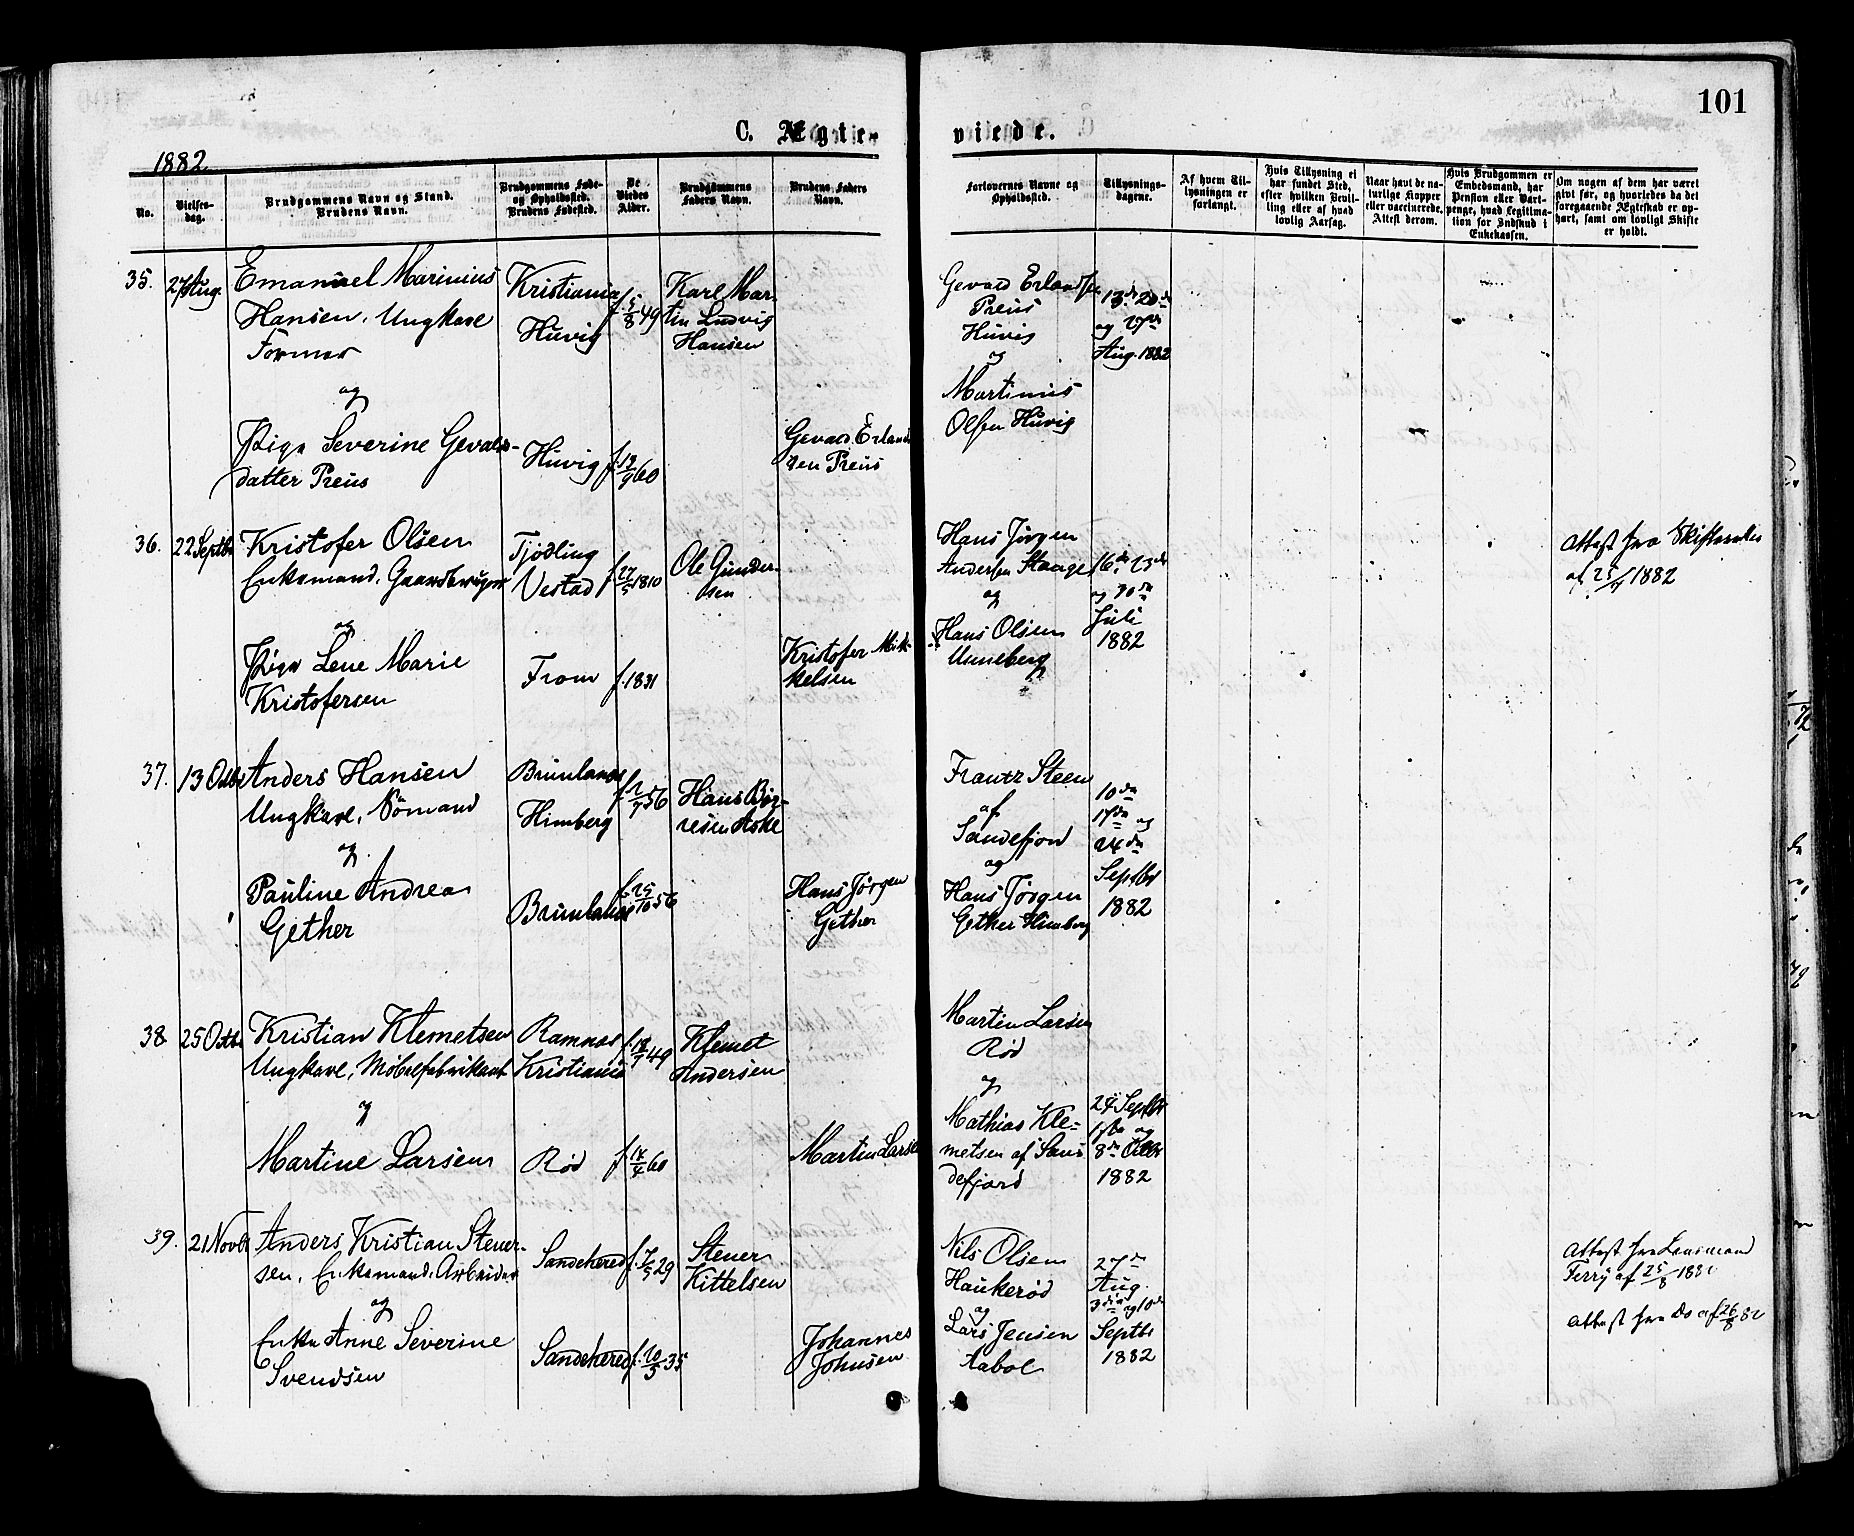 101
C. Ægte-
viede.
1882
No.
Vielses-
dag.
Brudgommens Navn og Stand.
Brudens Navn.
Brudgommens Føde-
og Opholdssted.
Brudens Fødested.
De
Viedes
Alder.
Brudgommens
Faders Navn.
Brudens Faders
Navn.
Forlovernes Navne og
Opholdssted.
Tillysnings-
dagene.
Af hvem Til-
lysningen er
forlangt.
Hvis Tillysning ei
har fundet Sted,
efter hvilken Bevil-
ling eller af hvad
lovlig Aarsag.
Naar havt de na-
turlige Kopper
eller vaccinerede.
Attest derom.
Hvis Brudgommen er
Embedsmand, har
Pension eller Vart-
penge, hvad Legitima-
tion for Indskud i
Enkekassen.
Om nogen af dem har været
givt før, og hvorledes da det
foregaaende Ægteskab er op-
hørt, samt om lovligt Skifte
er holdt.
35.
27 Aug.
Emanuel Marinius
Hansen, Ungkarl
Former
og
Pige Severine Gevalds-
datter Preus
Kristiania
Huvig
Huvig
f. 5/8 49
f. 19/9 60
Karl Mar-
tin Ludvig
Hansen
Gevald Erland
sen Preus
Gevald Erlandsen
Preus
Huvig
og
Martinius
Olsen Huvig
13de 20de
og 27de
Aug. 1882
36.
22 Septbr
Kristofer Olsen
Enkemand, Gaardbruger
og
Pige Lene Marie
Kristofersen
Tjødling
Vestad
From
f. 27/5 1810
f. 1831
Ole Gunder-
sen
Kristofer Mik-
kelsen
Hans Jørgen
Andersen Haage
og
Hans Olsen
Unneberg
16de 23de
og 30de
Juli
1882
Attest fra Skifteretten
af 25/1882
37.
13 Octbr
Anders Hansen
Ungkarl, Sømand
og
Pauline Andrea
Gether
Brunlanes
Himberg
Brunlanes
f. 1/7 56
f. 25/10 56
Hans Bør-
resen Aske
Hans Jørgen
Gether
Frantz Steen
af
Sandefjord
og
Hans Jørgen
Gether Himberg
10de
17de og
24de
Septbr
1882
38.
25 Octbr
Kristian Klemetsen
Ungkarl, Møbelfabrikant
og
Martine Larsen
Ramnæs
Kristiania
Rød
f. 18/7 49
f. 14/4 60
Klemet
Andersen
Martin Larsen
Martin Larsen
Rød
og
Mathias Kle-
metsen af San-
defjord
24 Septbr
1ste og
8de Octbr
1882
39.
21 Novbr
Anders Kristian Stener-
sen, Enkemand, Arbeider
og
Enke Anne Severine
Svendsen
Sandehered
Sandehered
f. 7/5 29
f. 10/5 35
Stener
Kittelsen
Johannes
Johnsen
Nils Olsen
Haukerød
og
Lars Jensen
Aabol
27de
Aug.
3die og 10de
Septbr
1882
Attest fra Lensmand
Ferry af 25/8 188
Attest fra Do af 26/8 82